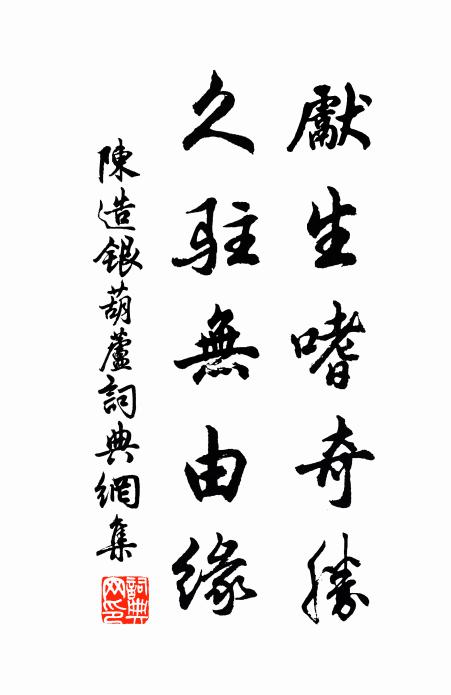 獻生嗜奇勝
久駐無由緣
陳造銀葫蘆詞典網集
詞典
网印